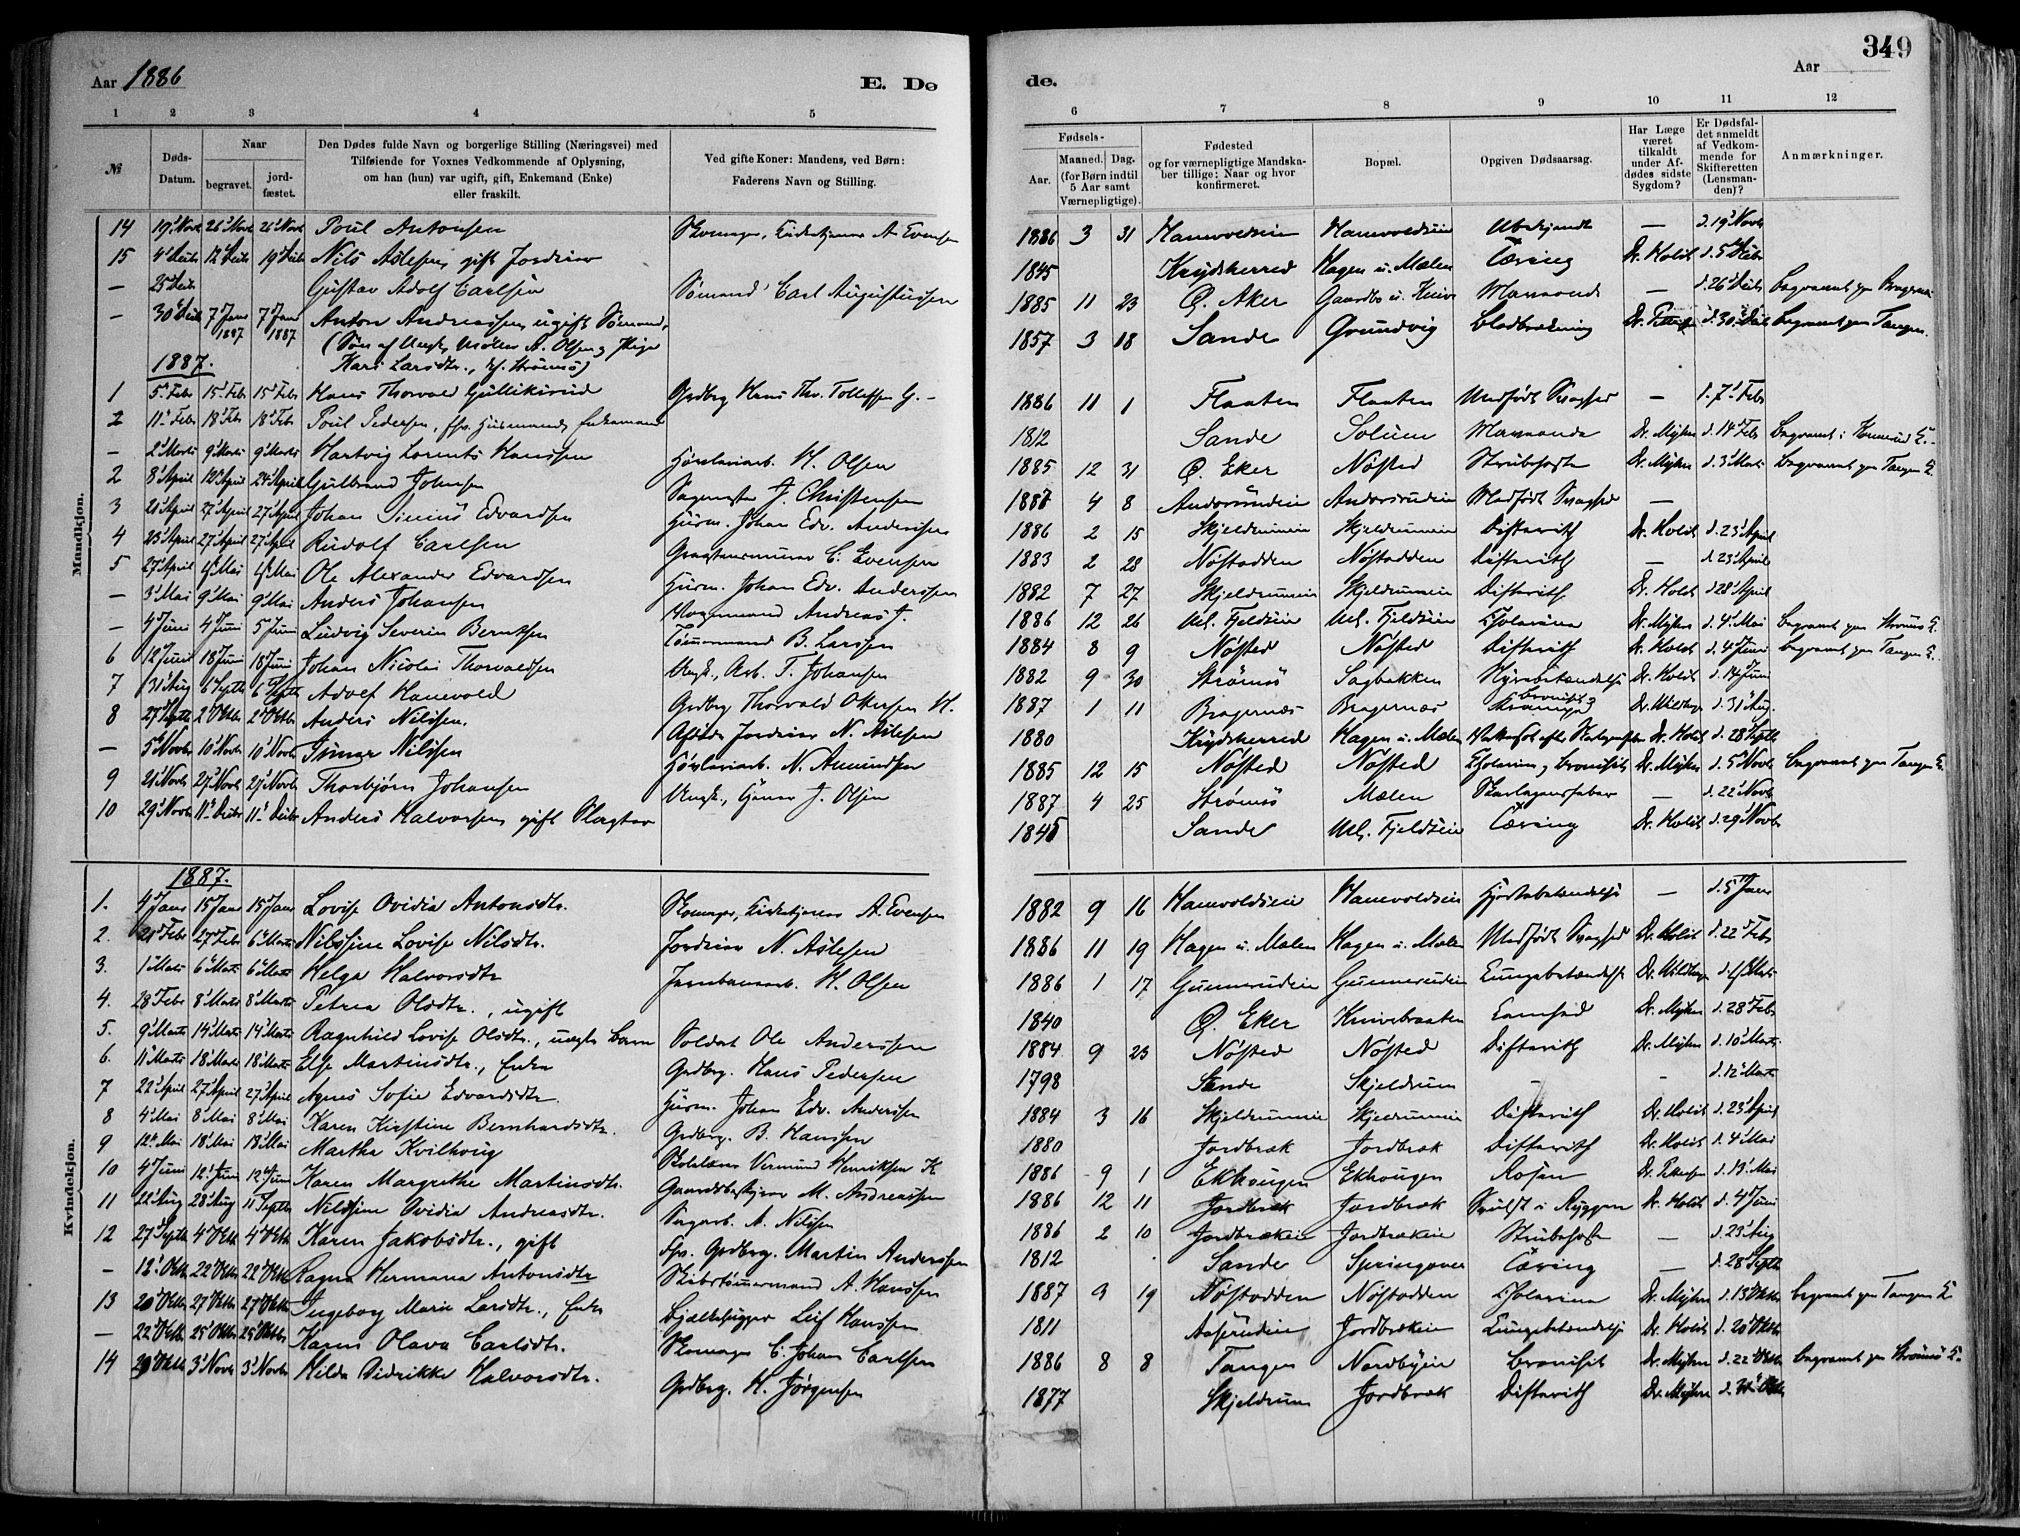 Aar 1886
E. Dø
de.
Aar
349
1 2 3 4 5 6 7 8 9 10 11 12
№
Døds-Datum.
Naar
begravet.
jord-fæstet.
Den Dødes fulde Navn og borgerlige Stilling (Næringsvei) med
Tilføiende for Voxnes Vedkommende af Oplysning,
om han (hun) var ugift, gift, Enkemand (Enke)
eller fraskilt.
Ved gifte Koner: Mandens, ved Børn:
Faderens Navn og Stilling.
Fødsels-
Aar.
Maaned. Dag.
(for Børn indtil
5 Aar samt
Værnepligtige).
Fødested
og for værnepligtige Mandska-
ber tillige: Naar og hvor
konfirmeret.
Bopæl.
Opgiven Dødsaarsag.
Har Læge
været
tilkaldt
under Af-
dødes sidste
Sygdom?
Er Dødsfal-
det anmeldt
af Vedkom-
mende for
Skifteretten
(Lensman-
den)?
Anmærkninger.
Mandkjøn.
14 19' Novb 26' Novb 26' Novb Poul Antonsen Skomager, Kirketjener A. Evensen 1886 3 31 Hanevoldseie Hanevoldseie Ubekjendt — d. 19' Novb
15 4' Decb 12' Decb 19' Decb Nils Aslesen, gift Jordeier 1845 Krydsherred Hagen u. Mælen Tæring Dr. Holst d. 5' Decb
— 25' Decb Gustav Adolf Carlsen Sømand Carl Augustussen 1885 11 23 Ø. Aker — d. 26' Decb
— 30' Decb 7' Janr 1887 7' Janr 1887 Anton Andreassen, ugift Sømand, 1857 3 18 Sande Grundvig Blodbrækning d. 30' Decb Begravet paa Tangen.
(Søn af A. Olsen og
Kari Larsdtr.,
1887.
1 5' Febr 15' Febr 15' Febr Hans Thorvald Gulliksrud Grdbrg Hans Thv. Tollefsen G. 1886 11 1 Flaaten Flaaten Medfødt Svaghed — d. 7' Febr
2 11' Febr 18' Febr 18' Febr Poul Pedersen, fhv. Husmand, Enkemand 1812 Sande Solum Dr. Myhre d. 14' Febr
— 2' Marts 9' Marts 9' Marts Hartvig Lorents Hanssen H. Olsen 1885 12 31 Ø. Eker Nøsted Strubehoste Dr. Myhre d. 3' Marts Begravet paa Tangen K.
2 8' April 12' April 24' April Gulbrand Johnsen J. Christensen 1887 4 8 Andorsrudeie Andorsrudeie Medfødt Svaghed —
3 21' April 27' April 27' April Johan Sinius Edvardsen Husm. Johan Edv. Anderssen 1886 2 15 Skjeldrumeie Skjeldrumeie Difterith Dr. Holst d. 23' April
4 23' April 27' April 27' April Rudolf Carlsen C. Evensen 1883 2 28 Nøstodden Nøstodden Difterith — d. 23' April
5 27' April 4' Mai 4' Mai Ole Alexander Edvardsen Husm. Johan Edv. Anderssen 1882 7 27 Skjeldrumeie Skjeldrumeie Difterith Dr. Holst d. 28' April
— 3' Mai 9' Mai 9' Mai Anders Johansen Andreas J. 1886 12 26 Ml. Fjeldseie Ml. Fjeldseie Kolerina Dr. Myhre d. 4' Mai Begravet paa Strømsø K.
— 4' Juni 4' Juni 5' Juni Ludvig Severin Berntsen Tømmermand B. Larssen 1884 8 9 Nøsted Nøsted Difterith Dr. Holst d. 4' Juni Begravet paa Tangen K.
6 12' Juni 18' Juni 18' Juni Johan Nicolai Thorvaldsen Ungk., Arb. T. Johansen 1882 9 30 Strømsø Sagbakken Nyrebetændelse Dr. Holst d. 14' Juni
7 31' Aug 6' Septb 6' Septb Adolf Hanevold Grdbrg Thorvald Ottersen H. 1887 1 11 Bragernæs Bragernæs Bronchit d. 31' Aug.
8 27' Septb 2' Oktb 2' Oktb Anders Nilssen. Afdøde Jordeier N. Aslesen 1880 Krydsherred Hagen u. Mælen Dr. Holst d. 28' Septb
— 5' Novb 10' Novb 10' Novb Einar Nilssen N. Amundsen 1885 12 15 Nøsted Nøsted Kolerina og Bronchit Dr. Myhre d. 5' Novb Begravet paa Tangen K.
9 21' Novb 27' Novb 27' Novb Thorbjørn Johansen Ungk., J. Olsen 1887 4 25 Strømsø Mælen Skarlagensfeber — d. 22' Novb
10 29' Novb 11' Decb 11' Decb Anders Halvorsen, gift Slagter 1845 Sande Ml. Fjeldseie Tæring Dr. Holst d. 29' Novb
Kvindekjøn.
1887.
1. 4' Janr 15' Janr 15' Janr Lovise Ovidia Antonsdtr. Skomager, Kirketjener A. Evensen 1882 9 16 Hanevoldseie Hanevoldseie Hjertebetændelse — d. 5' Janr
2. 21' Febr 27' Febr 6' Marts Nilssine Lovise Nilsdtr. Jordeier N. Aslesen 1886 11 19 Hagen u. Mælen Hagen u. Mælen Medfødt Svaghed Dr. Holst d. 22' Febr
3. 1' Marts 6' Marts 6' Marts Helga Halvorsdtr. Jernbanearb. H. Olsen 1886 1 17 Gunnerudeie Gunnerudeie Lungebetændelse
4. 28' Febr 8' Marts 8' Marts Petrea Olsdtr., ugift 1840 Ø. Eker Knivebraaten Lamhed Dr. Myhre d. 28' Febr
5. 9' Marts 14' Marts 14' Marts Ragnhild Lovise Olsdtr., uægte Barn Soldat Ole Anderssen 1884 9 23 Nøsted Nøsted Difterith Dr. Myhre d. 10' Marts
6. 11' Marts 18' Marts 18' Marts Else Martinsdtr., Enke Grdbrg. Hans Pedersen 1798 Sande Skjeldrum — — d. 12' Marts
7 22' April 27' April 27' April Agnes Sofie Edvardsdtr. Husm. Johan Edv. Anderssen 1884 3 16 Skjeldrumeie Skjeldrumeie Difterith Dr. Holst d. 23' April
8 4' Mai 8' Mai 8' Mai Karen Kirstine Bernhardsdtr. Grdbrg. B. Hanssen 1880 Jordbræk Jordbræk Difterith Dr. Holst d. 4' Mai
9 12' Mai 18' Mai 18' Mai Martha Kvilhoug Skolelærer Vermund Henriksen K 1886 9 1 Ekhougen Ekhougen Rosen d. 13' Mai
10 4' Juni 12' Juni 12' Juni Karen Margrethe Martinsdtr. Gaardsbestyrer M. Andreassen 1886 12 11 Jordbræk Jordbræk Svulst i Ryggen Dr. Holst d. 4' Juni
11 22' Aug 28' Aug 11' Septb Nilssine Ovidia Andreasdtr. Sagarb. A. Nilssen 1886 2 10 Jordbrækeie Jordbrækeie Strubehoste — d. 23' Aug
12 27' Septb 4' Oktb 4' Oktb Karen Jakobsdtr., gift Fhv. Grdbrg. Martin Anderssen 1812 Sande Springaren Tæring — d. 28' Septb
— 12' Oktb 22' Oktb 22' Oktb Ragna Hermana Antonsdtr Skibstømmermand A. Hanssen 1887 3 19 Nøstodden Nøstodden Kolerina Dr. Myhre d. 13' Oktb Begravet paa Tangen K.
13 20' Oktb 27' Oktb 27' Oktb Ingeborg Marie Larsdtr., Enke Bjælkehugger Leif Hanssen 1811 Aaserudeie Jordbrækeie Lungebetændelse Dr. Holst d. 20' Oktb
— 22' Oktb 25' Oktb 25' Oktb Karen Olava Carlsdtr. Skomager C. Johan Carlsen 1886 8 8 Tangen Nordbyeie Bronchit Dr. Myhre d. 22' Oktb Begravet paa Strømsø K.
14 29' Oktb 3' Novb 3' Novb Hilda Didrikke Halvorsdtr. Grdbrg. H. Jørgensen 1877 Skjeldrum Jordbræk Difterith Dr. Myhre